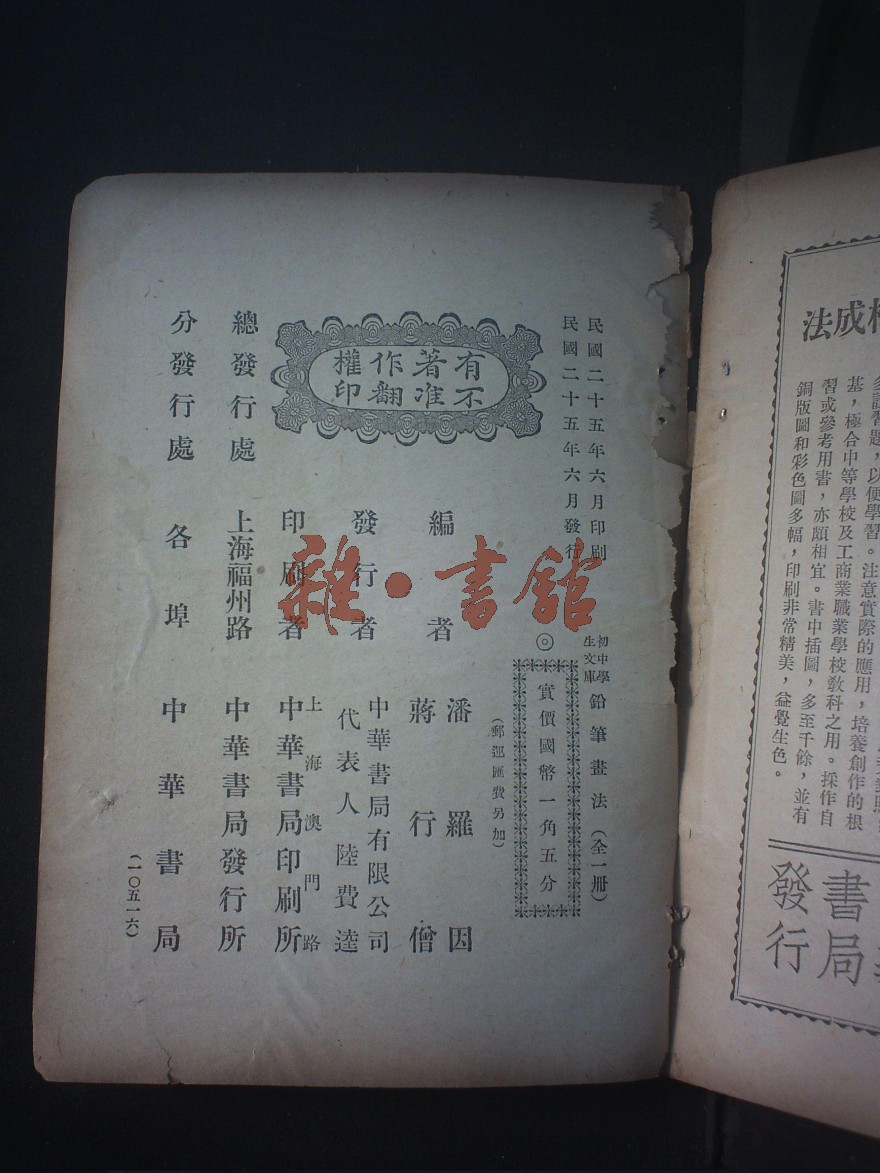 民國二十五年六月印刷
民國二十五年六月發行
初中學生文庫 鉛筆畫法（全一冊）
◎ 實價國幣一角五分
（郵運匯費另加）
有著作權
不准翻印
編者 潘羅因
蔣行僧
發行者 中華書局有限公司
代表人 陸費逵
印刷者 上海澳門路
中華書局印刷所
總發行處 上海福州路 中華書局發行所
分發行處 各埠 中華書局
（一〇五一六）
雜·書館
成法
習題，以便學習。注意實際的應用，培養創作的根
基，極合中等學校及工商業職業學校教科之用。採作自
習或參考用書，亦頗相宜。書中插圖，多至千餘，並有
銅版圖和彩色圖多幅，印刷非常精美，益覺生色。
書局
發行